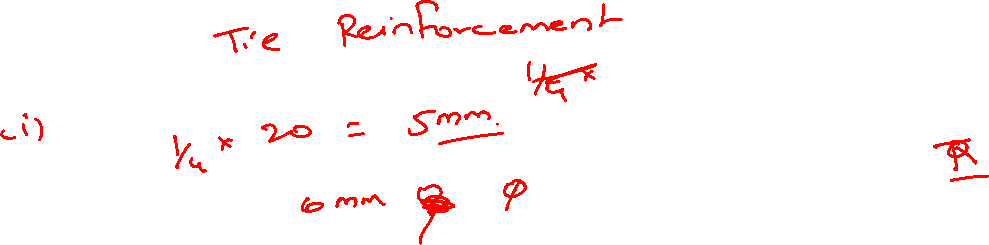 Tie Reinforcement
(i) 1/4 × 20 = 5mm.
6 mm φ